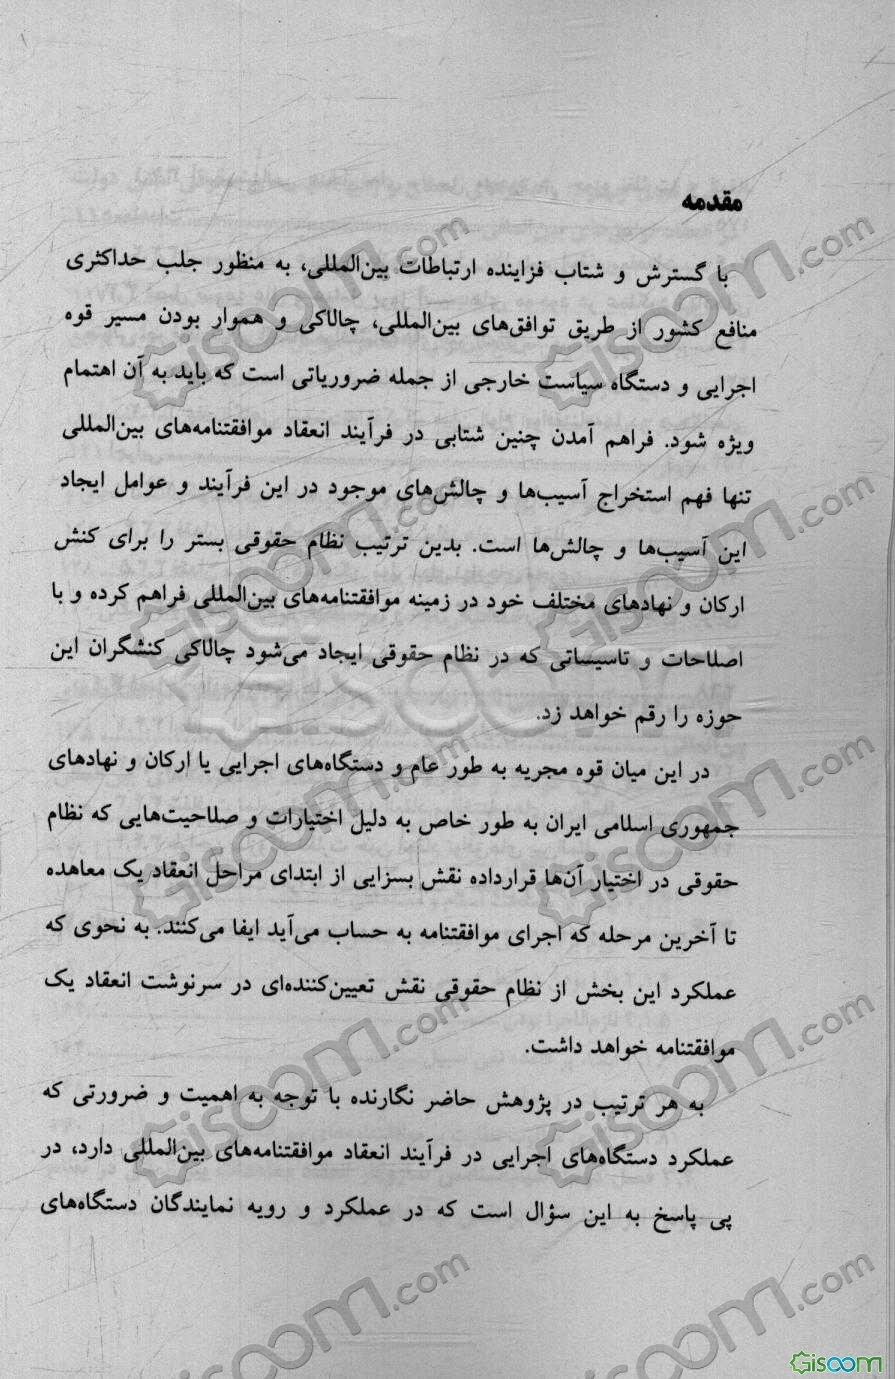 مقدمه
با گسترش و شتاب فزاینده ارتباطات بین‌المللی، به منظور جلب حداکثری
منافع کشور از طریق توافق‌های بین‌المللی، چالاکی و هموار بودن مسیر قوه
اجرایی و دستگاه سیاست خارجی از جمله ضروریاتی است که باید به آن اهتمام
ویژه شود. فراهم آمدن چنین شتابی در فرآیند انعقاد موافقتنامه‌های بین‌المللی
تنها فهم استخراج آسیب‌ها و چالش‌های موجود در این فرآیند و عوامل ایجاد
این آسیب‌ها و چالش‌ها است. بدین ترتیب نظام حقوقی بستر را برای کنش
ارکان و نهادهای مختلف خود در زمینه موافقتنامه‌های بین‌المللی فراهم کرده و با
اصلاحات و تاسیساتی که در نظام حقوقی ایجاد می‌شود چالاکی کنشگران این
حوزه را رقم خواهد زد.
در این میان قوه مجریه به طور عام و دستگاه‌های اجرایی یا ارکان و نهادهای
جمهوری اسلامی ایران به طور خاص به دلیل اختیارات و صلاحیت‌هایی که نظام
حقوقی در اختیار آن‌ها قرارداده نقش بسزایی از ابتدای مراحل انعقاد یک معاهده
تا آخرین مرحله که اجرای موافقتنامه به حساب می‌آید ایفا می‌کنند. به نحوی که
عملکرد این بخش از نظام حقوقی نقش تعیین‌کننده‌ای در سرنوشت انعقاد یک
موافقتنامه خواهد داشت.
به هر ترتیب در پژوهش حاضر نگارنده با توجه به اهمیت و ضرورتی که
عملکرد دستگاه‌های اجرایی در فرآیند انعقاد موافقتنامه‌های بین‌المللی دارد، در
پی پاسخ به این سؤال است که در عملکرد و رویه نمایندگان دستگاه‌های
Gisoom.com
Gisoom